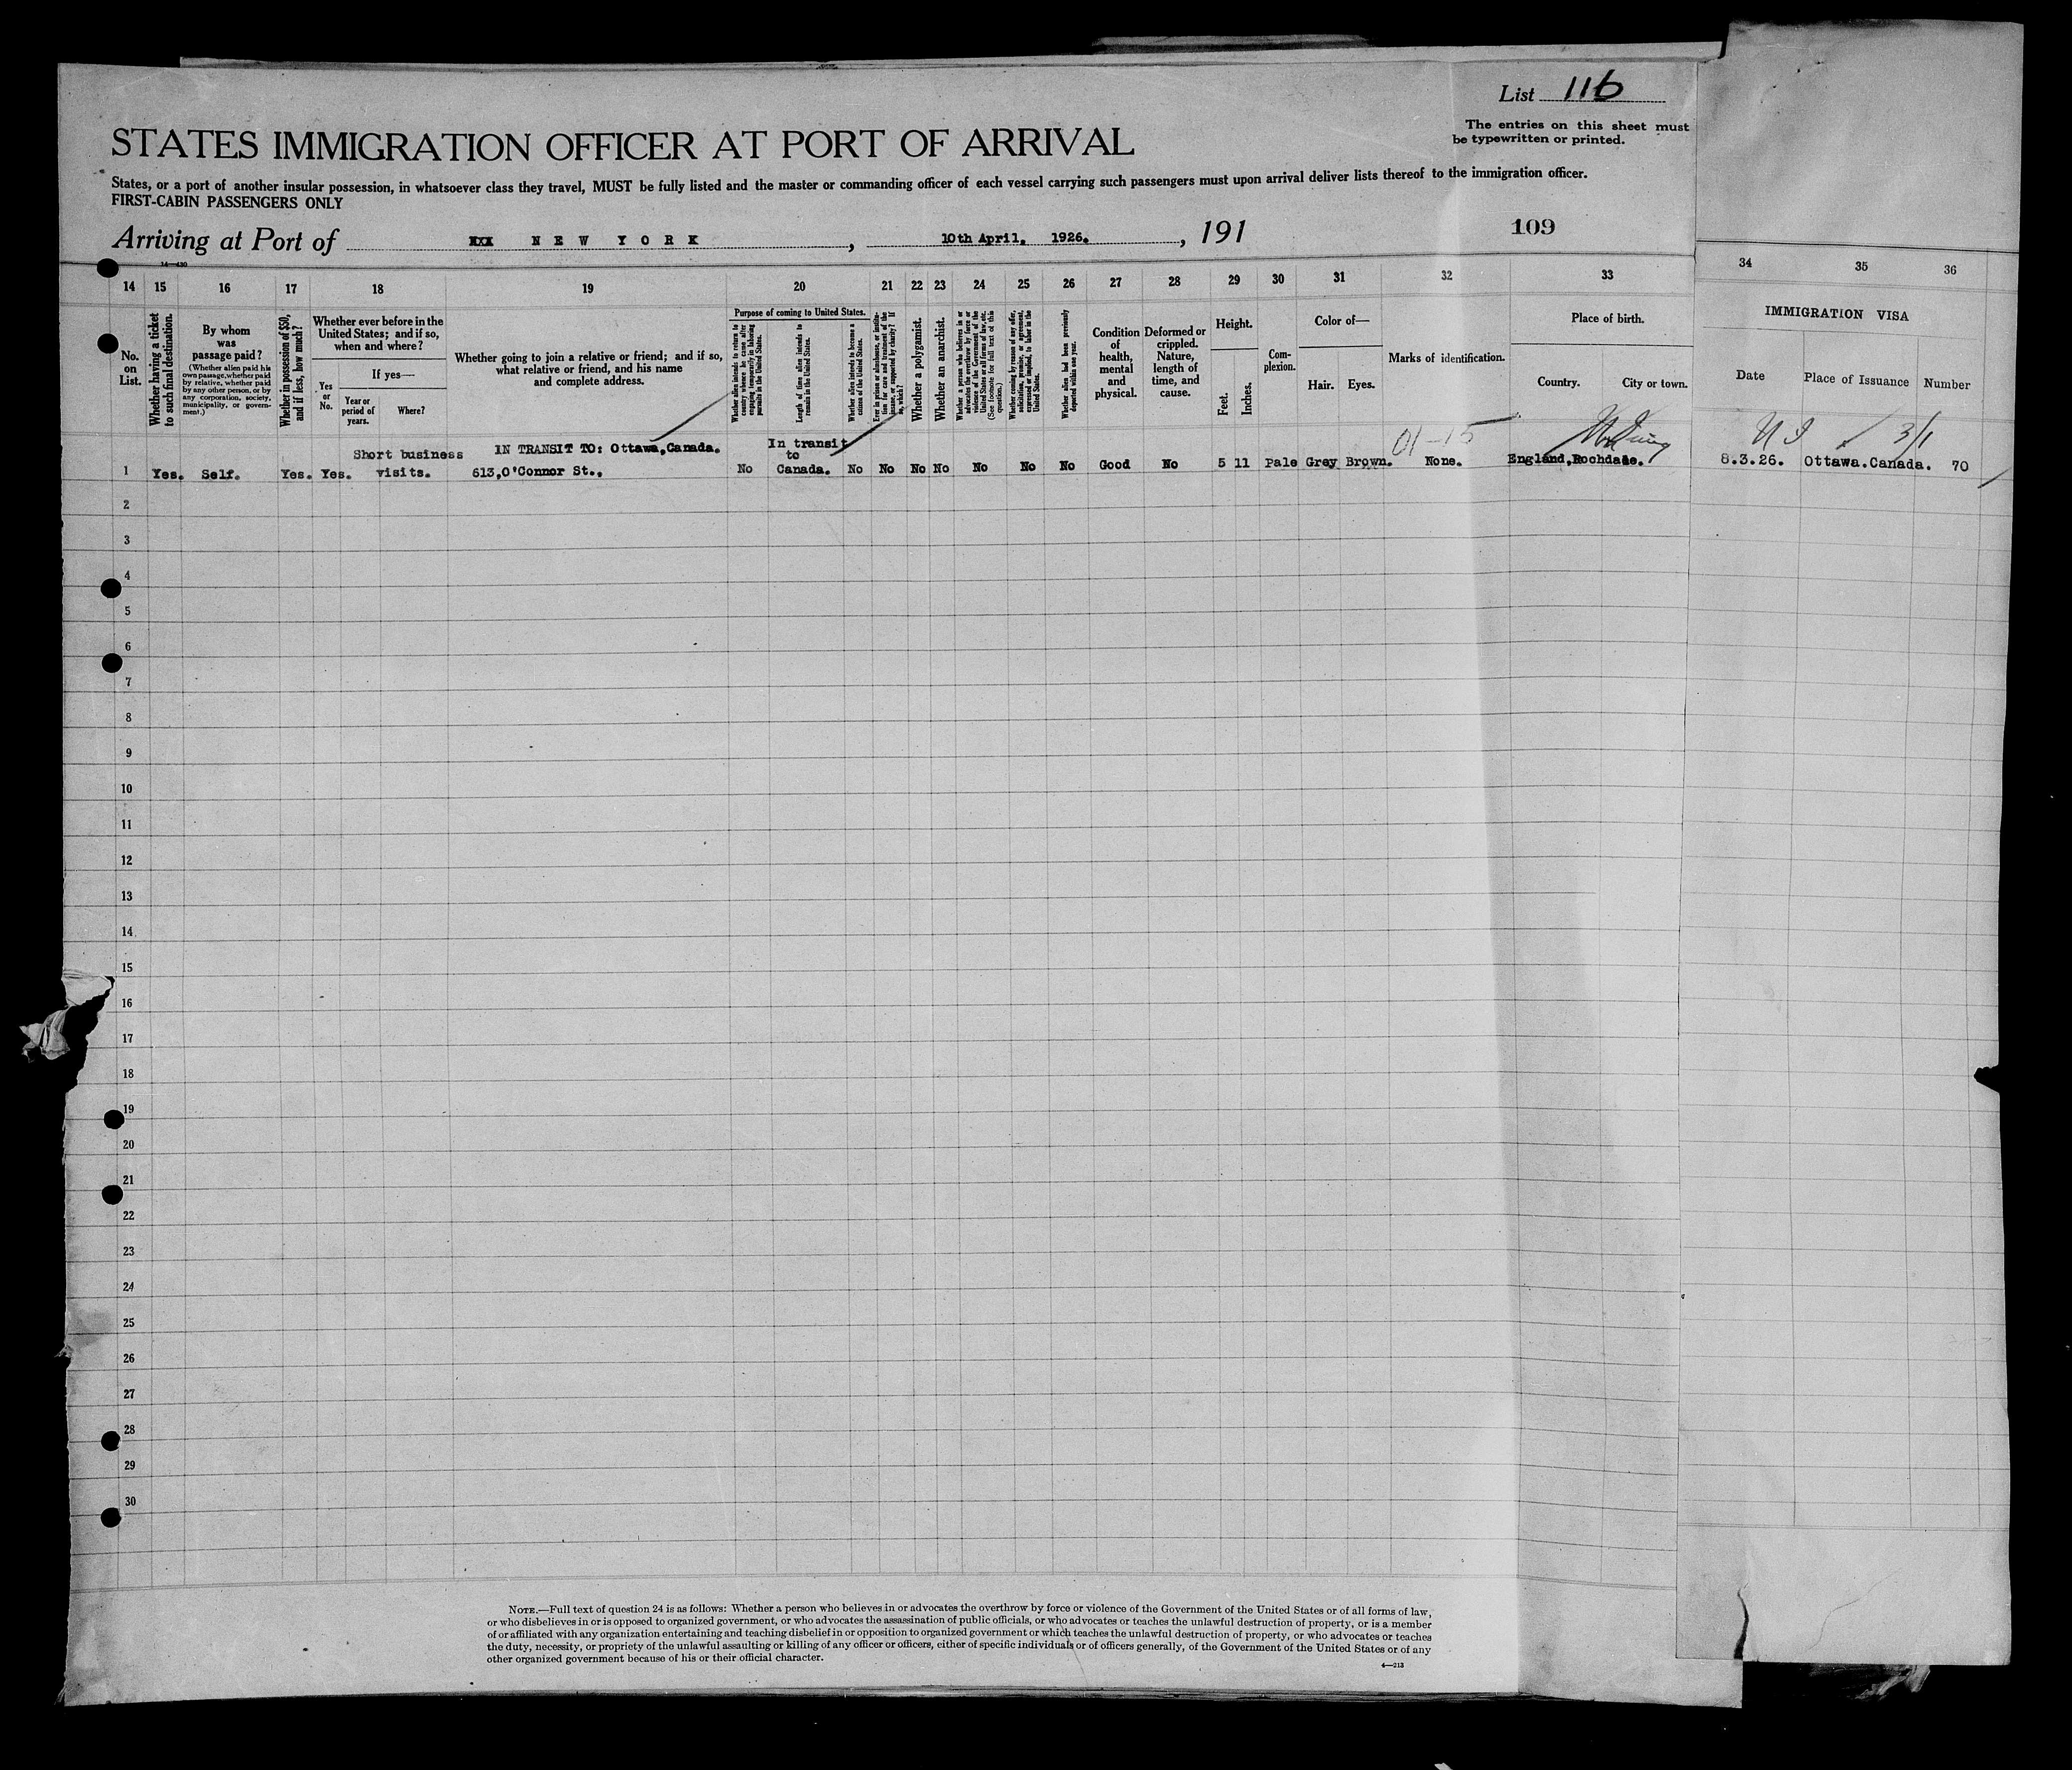 List 116
The entries on this sheet must
be typewritten or printed.
STATES IMMIGRATION OFFICER AT PORT OF ARRIVAL
States, or a port of another insular possession, in whatsoever class they travel, MUST be fully listed and the master or commanding officer of each vessel carrying such passengers must upon arrival deliver lists thereof to the immigration officer.
FIRST-CABIN PASSENGERS ONLY
109
Arriving at Port of XXX NEW YORK, 10th April, 1926., 191
14—430
14 15 16 17 18 19 20 21 22 23 24 25 26 27 28 29 30 31 32 33 34 35 36
No. on List.
Whether having a ticket to such final destination.
By whom was passage paid?
(Whether alien paid his own passage, whether paid by relative, whether paid by any other person, or by any corporation, society, municipality, or government.)
Whether in possession of $50, and if less, how much?
Whether ever before in the United States; and if so, when and where?
Yes or No.
If yes—
Year or period of years.
Where?
Whether going to join a relative or friend; and if so, what relative or friend, and his name and complete address.
Purpose of coming to United States.
Whether alien intends to return to country whence he came after engaging temporarily in laboring pursuits in the United States.
Length of time alien intends to remain in the United States.
Whether alien intends to become a citizen of the United States.
Ever in prison or almshouse, or institution for care and treatment of the insane, or supported by charity? If so, which?
Whether a polygamist.
Whether an anarchist.
Whether a person who believes in or advocates the overthrow by force or violence of the Government of the United States or all forms of law, etc. (See footnote for full text of this question.)
Whether coming by reason of any offer, solicitation, promise, or agreement, expressed or implied, to labor in the United States.
Whether alien had been previously deported within one year.
Condition of health, mental and physical.
Deformed or crippled. Nature, length of time, and cause.
Height.
Feet. Inches.
Complexion.
Color of—
Hair. Eyes.
Marks of identification.
Place of birth.
Country. City or town.
IMMIGRATION VISA
Date Place of Issuance Number
01-15 3/1
Short business IN TRANSIT TO: Ottawa,Canada. In transit to
1 Yes. Self. Yes. Yes. visits. 613,O'Connor St., No Canada. No No No No No No No Good No 5 11 Pale Grey Brown. None. England,Rochdale. 8.3.26. Ottawa.Canada. 70
2
3
4
5
6
7
8
9
10
11
12
13
14
15
16
17
18
19
20
21
22
23
24
25
26
27
28
29
30
NOTE.—Full text of question 24 is as follows: Whether a person who believes in or advocates the overthrow by force or violence of the Government of the United States or of all forms of law,
or who disbelieves in or is opposed to organized government, or who advocates the assassination of public officials, or who advocates or teaches the unlawful destruction of property, or is a member
of or affiliated with any organization entertaining and teaching disbelief in or opposition to organized government or which teaches the unlawful destruction of property, or who advocates or teaches
the duty, necessity, or propriety of the unlawful assaulting or killing of any officer or officers, either of specific individuals or of officers generally, of the Government of the United States or of any
other organized government because of his or their official character.
4—213